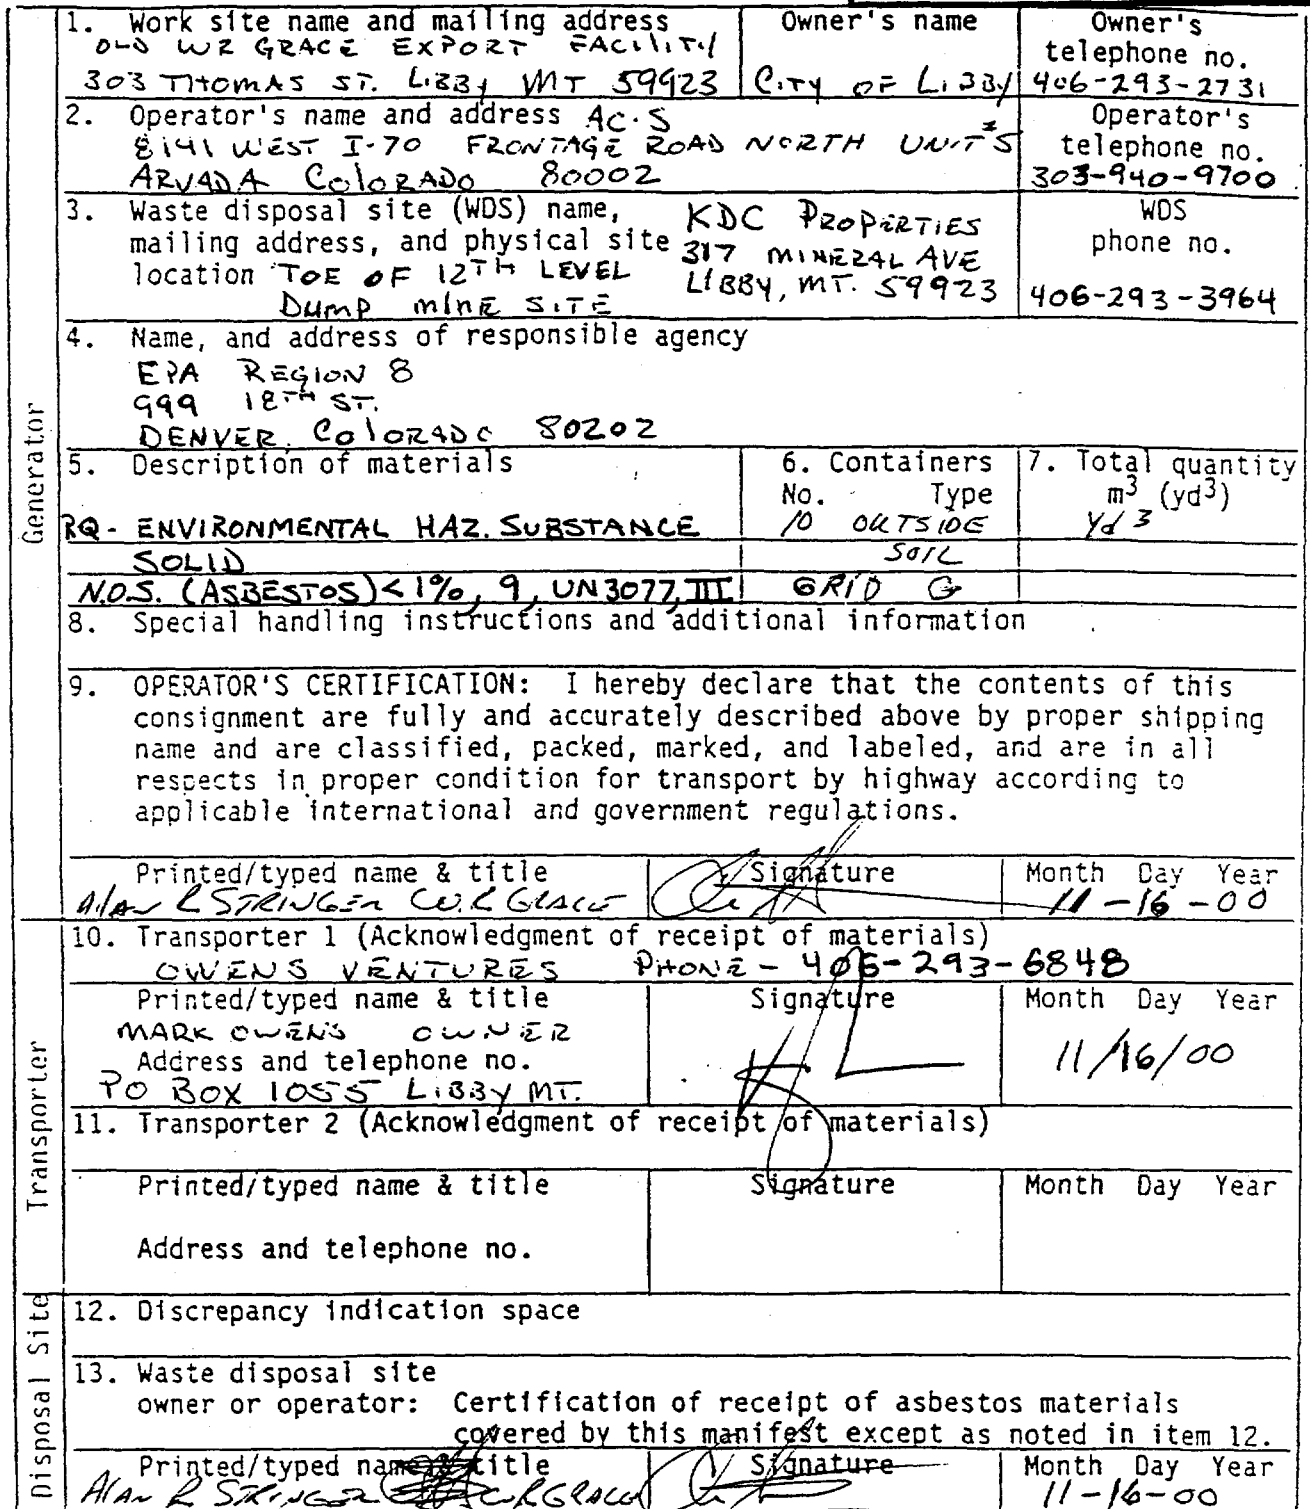 1. Work site name and mailing address
OLD WR GRACE EXPORT FACILITY
303 THOMAS ST. LIBBY MT 59923
Owner's name
CITY OF LIBBY
Owner's
telephone no.
406-293-2731
2. Operator's name and address AC·S
8141 WEST I-70 FRONTAGE ROAD NORTH UNIT #5
ARVADA COLORADO 80002
Operator's
telephone no.
303-940-9700
3. Waste disposal site (WDS) name,
mailing address, and physical site
location TOE OF 12TH LEVEL
DUMP MINE SITE
KDC PROPERTIES
317 MINERAL AVE
LIBBY, MT. 59923
WDS
phone no.
406-293-3964
4. Name, and address of responsible agency
EPA REGION 8
999 18TH ST.
DENVER, COLORADO 80202
Generator
5. Description of materials
RQ - ENVIRONMENTAL HAZ. SUBSTANCE
SOLID
N.O.S. (ASBESTOS) < 1%, 9, UN3077, III
6. Containers
No. Type
10 OUTSIDE
SOIL
GRID G
7. Total quantity
m3 (yd3)
Yd 3
8. Special handling instructions and additional information
9. OPERATOR'S CERTIFICATION: I hereby declare that the contents of this
consignment are fully and accurately described above by proper shipping
name and are classified, packed, marked, and labeled, and are in all
respects in proper condition for transport by highway according to
applicable international and government regulations.
Printed/typed name & title
Alan R STRINGER W.R GRACE
Signature
Month Day Year
11-16-00
Transporter
10. Transporter 1 (Acknowledgment of receipt of materials)
OWENS VENTURES PHONE - 406-293-6848
Printed/typed name & title
MARK OWENS OWNER
Address and telephone no.
PO BOX 1055 LIBBY MT.
Signature
Month Day Year
11/16/00
11. Transporter 2 (Acknowledgment of receipt of materials)
Printed/typed name & title
Address and telephone no.
Signature
Month Day Year
Disposal Site
12. Discrepancy indication space
13. Waste disposal site
owner or operator: Certification of receipt of asbestos materials
covered by this manifest except as noted in item 12.
Printed/typed name & title
Alan R STRINGER W R GRACE
Signature
Month Day Year
11-16-00